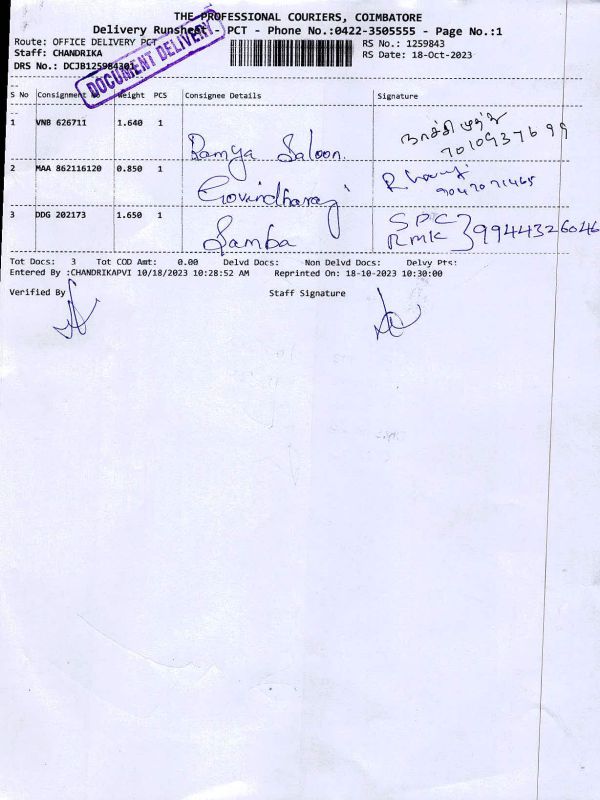 THE PROFESSIONAL COURIERS, COIMBATORE
Delivery Runsheet - PCT - Phone No.:0422-3505555 - Page No.:1
Route: OFFICE DELIVERY PCT
RS No.: 1259843
Staff: CHANDRIKA
RS Date: 18-Oct-2023
DRS No.: DCJB125984301
DOCUMENT DELIVERY
S No Consignment No Weight PCS Consignee Details Signature
1 VNB 626711 1.640 1 Ramya Saloon.
7010937699
2 MAA 862116120 0.850 1 Govindharaj
9047071465
3 DDG 202173 1.650 1 Samba
SPC
RMK } 9944326046
Tot Docs: 3 Tot COD Amt: 0.00 Delvd Docs: Non Delvd Docs: Delvy Pts:
Entered By :CHANDRIKAPVI 10/18/2023 10:28:52 AM Reprinted On: 18-10-2023 10:30:00
Verified By Staff Signature